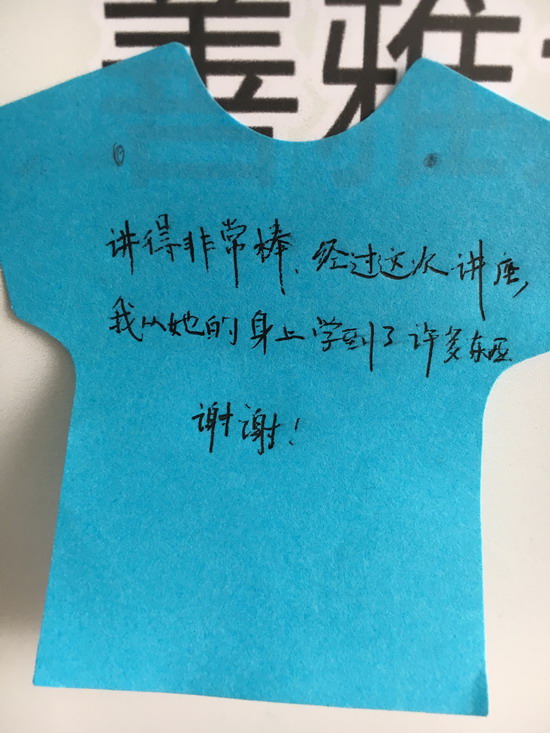 善雅
讲得非常棒、经过这次讲座,
我从她的身上学到了许多东西
谢谢!